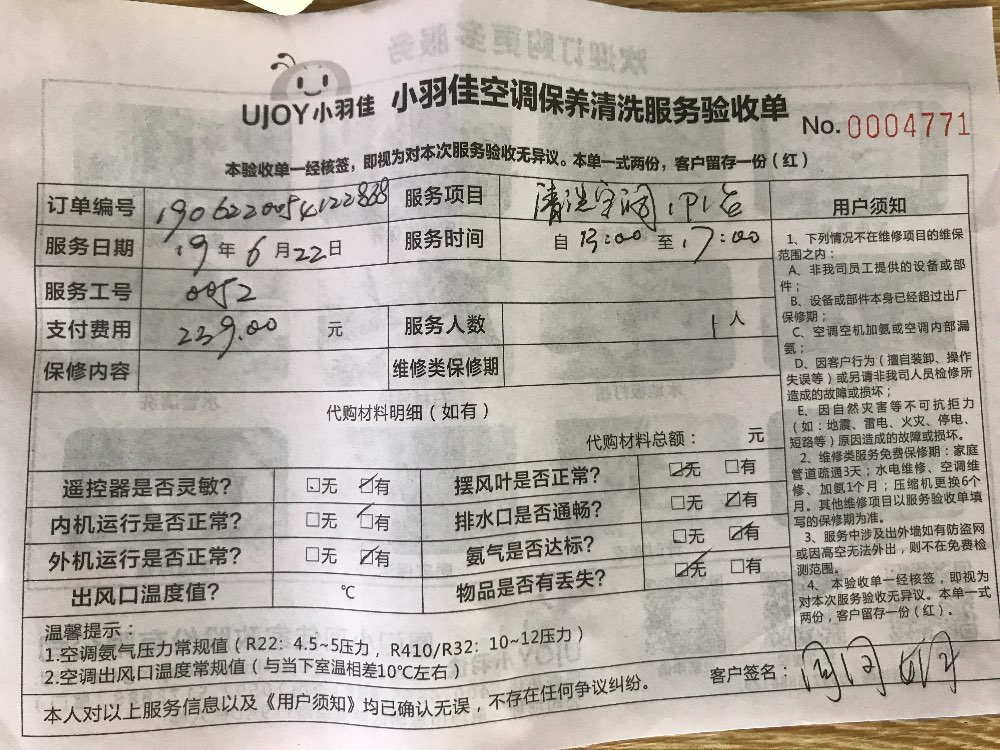 UJOY小羽佳 小羽佳空调保养清洗服务验收单
No. 0004771
本验收单一经核签，即视为对本次服务验收无异议。本单一式两份，客户留存一份（红）
订单编号 1906220054122838 服务项目 清洗空调
服务日期 19年6月22日 服务时间 自13:00至17:00
服务工号 0052
支付费用 239.00 元 服务人数 1人
保修内容 维修类保修期
代购材料明细（如有）
代购材料总额： 元
遥控器是否灵敏? □无 ☑有 摆风叶是否正常? ☑无 □有
内机运行是否正常? □无 ☑有 排水口是否通畅? □无 ☑有
外机运行是否正常? □无 ☑有 氨气是否达标? □无 ☑有
出风口温度值? ℃ 物品是否有丢失? ☑无 □有
用户须知
1、下列情况不在维修项目的维保
范围之内：
A、非我司员工提供的设备或部
件；
B、设备或部件本身已经超过出厂
保修期；
C、空调空机加氨或空调内部漏
氨；
D、因客户行为（擅自装卸、操作
失误等）或另请非我司人员检修所
造成的故障或损坏；
E、因自然灾害等不可抗拒力
（如：地震、雷电、火灾、停电、
短路等）原因造成的故障或损坏。
2、维修类服务免费保修期：家庭
管道疏通3天；水电维修、空调维
修、加氨1个月；压缩机更换6个
月。其他维修项目以服务验收单填
写的保修期为准。
3、服务中涉及出外墙如有防盗网
或因高空无法外出，则不在免费检
测范围。
4、本验收单一经核签，即视为
对本次服务验收无异议。本单一式
两份，客户留存一份（红）。
温馨提示：
1.空调氨气压力常规值（R22：4.5~5压力，R410/R32：10~12压力）
2.空调出风口温度常规值（与当下室温相差10℃左右）
客户签名：
本人对以上服务信息以及《用户须知》均已确认无误，不存在任何争议纠纷。
欢迎订购更多服务